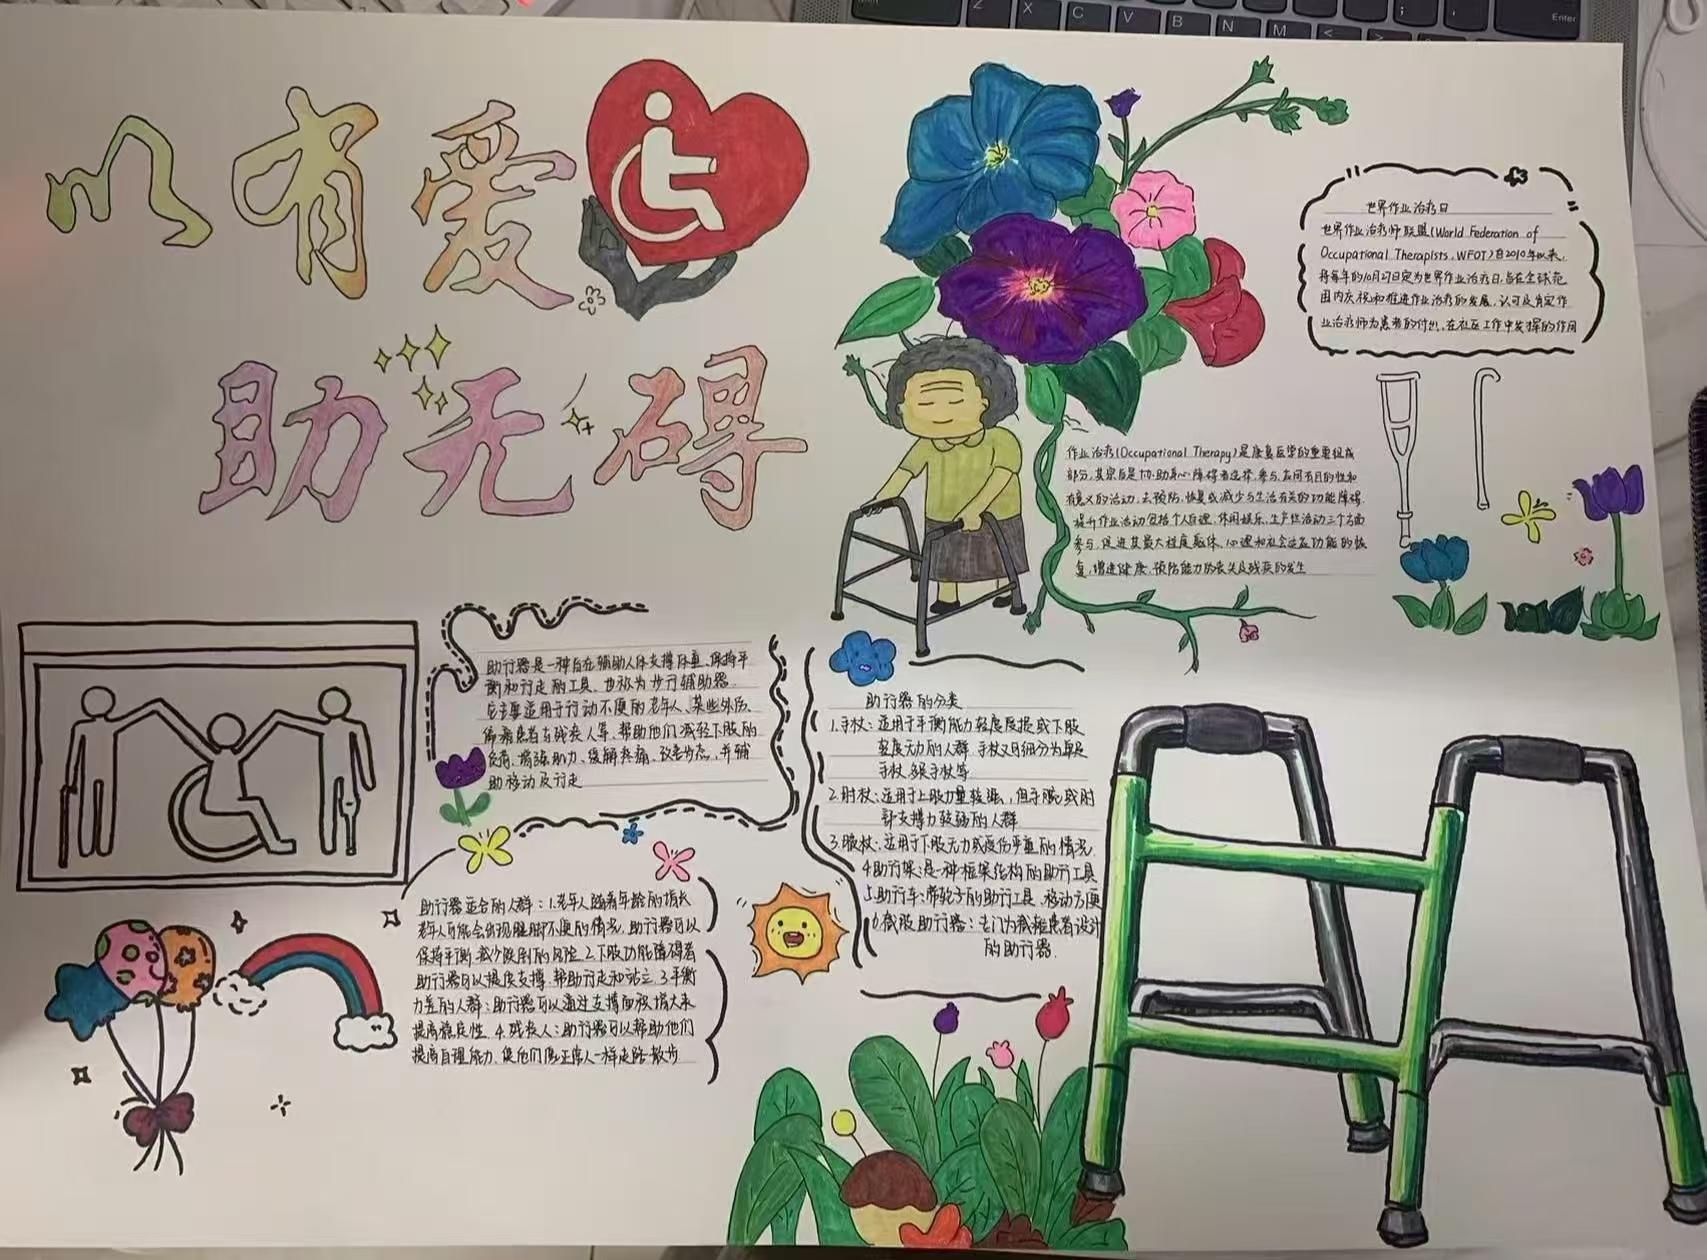 以有爱
助无碍
世界作业治疗日
世界作业治疗师联盟(World Federation of
Occupational Therapists, WFOT)自2010年以来,
将每年的10月27日定为世界作业治疗日,旨在全球范
围内庆祝和推进作业治疗的发展,认可及肯定作
业治疗师为患者的付出,在社区工作中发挥的作用
作业治疗(Occupational Therapy)是康复医学的重要组成
部分,其宗旨是协助身心障碍者选择,参与,应用有目的性和
有意义的活动,去预防,恢复或减少与生活有关的功能障碍,
提升作业活动包括个人自理,休闲娱乐,生产性活动三个方面
参与,促进其最大程度躯体,心理和社会适应功能的恢
复,增进健康,预防能力的丧失及残疾的发生
助行器是一种旨在辅助人体支撑体重、保持平
衡和行走的工具,也称为步行辅助器.
它主要适用于行动不便的老年人、某些外伤、
偏瘫患者与残疾人等,帮助他们减轻下肢的
负荷,增强肌力,缓解疼痛,改善步态,并辅
助移动及行走
助行器的分类
1.手杖:适用于平衡能力轻度受损或下肢
轻度无力的人群,手杖又可细分为单足
手杖,多足手杖等
2.肘杖:适用于上肢力量较强,但手腕或肘
部支撑力较弱的人群
3.腋杖:适用于下肢无力或受伤严重的情况.
4助行架:是一种框架结构的助行工具
5.助行车:带轮子的助行工具,移动方便
6截肢助行器:专门为截瘫患者设计
的助行器.
助行器适合的人群:1.老年人随着年龄的增长
老年人可能会出现腿脚不便的情况,助行器可以
保持平衡,减少跌倒的风险2.下肢功能障碍者
助行器可以提供支撑,帮助行走和站立.3.平衡
力差的人群:助行器可以通过支撑面积增大来
提高稳定性.4.残疾人:助行器可以帮助他们
提高自理能力,使他们像正常人一样走路散步